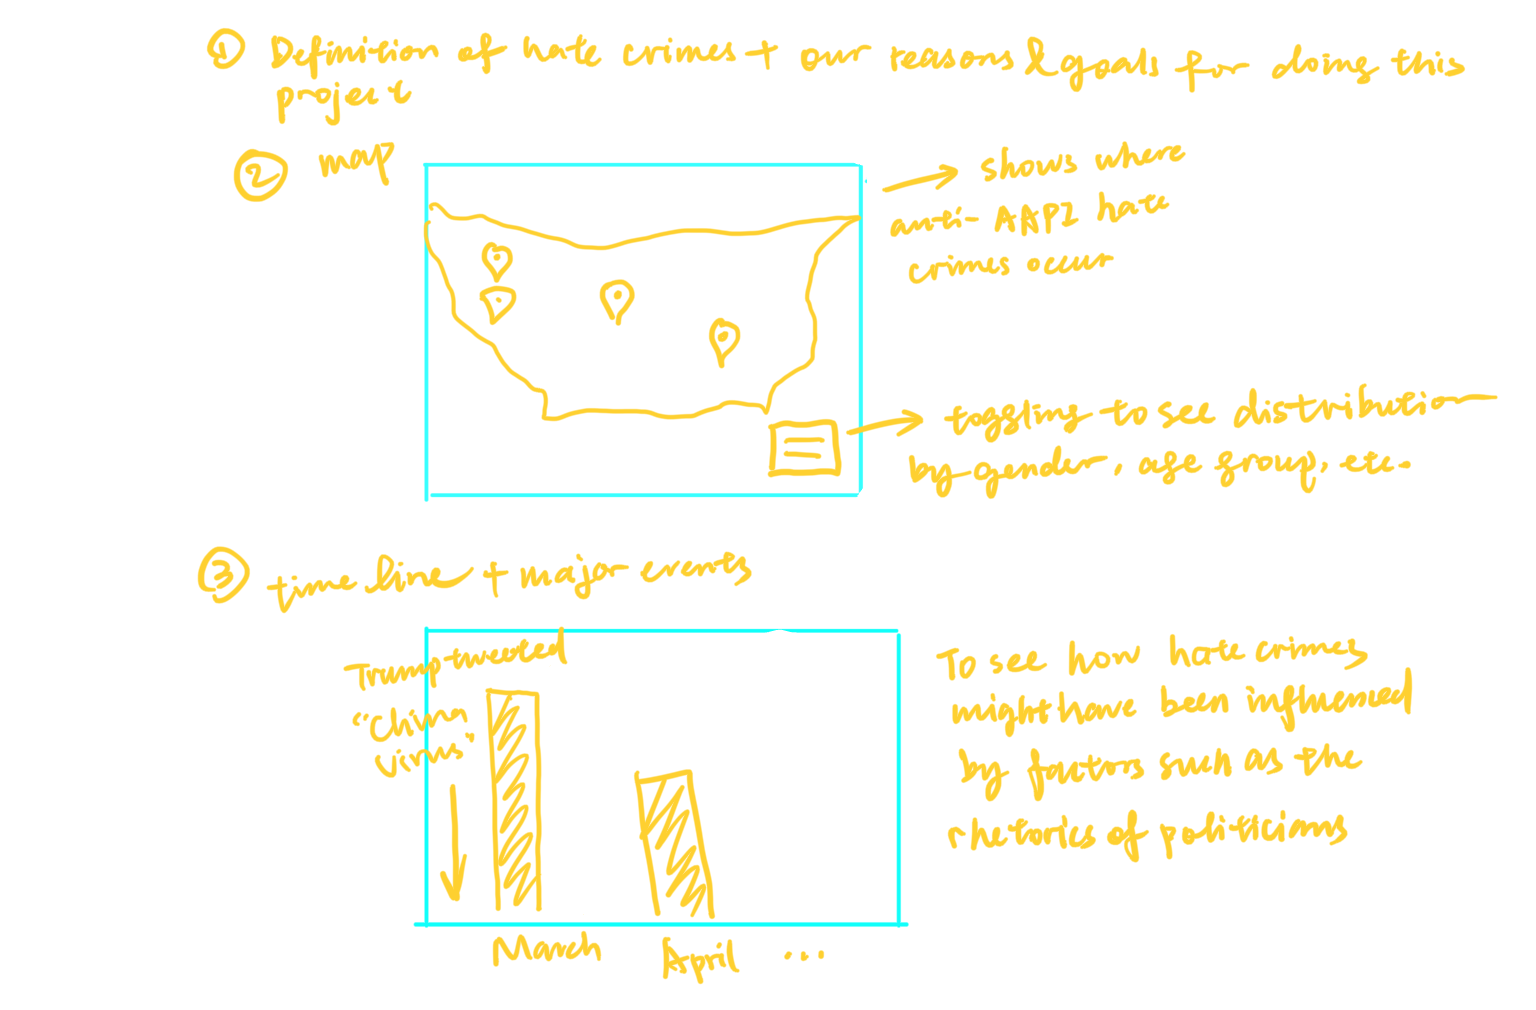 ① Definition of hate crimes + our reasons & goals for doing this
project
② map
→ shows where
anti-AAPI hate
crimes occur
→ toggling to see distribution
by gender, age group, etc.
③ timeline + major events
Trump tweeted
"China
virus"
March April ...
To see how hate crimes
might have been influenced
by factors such as the
rhetorics of politicians